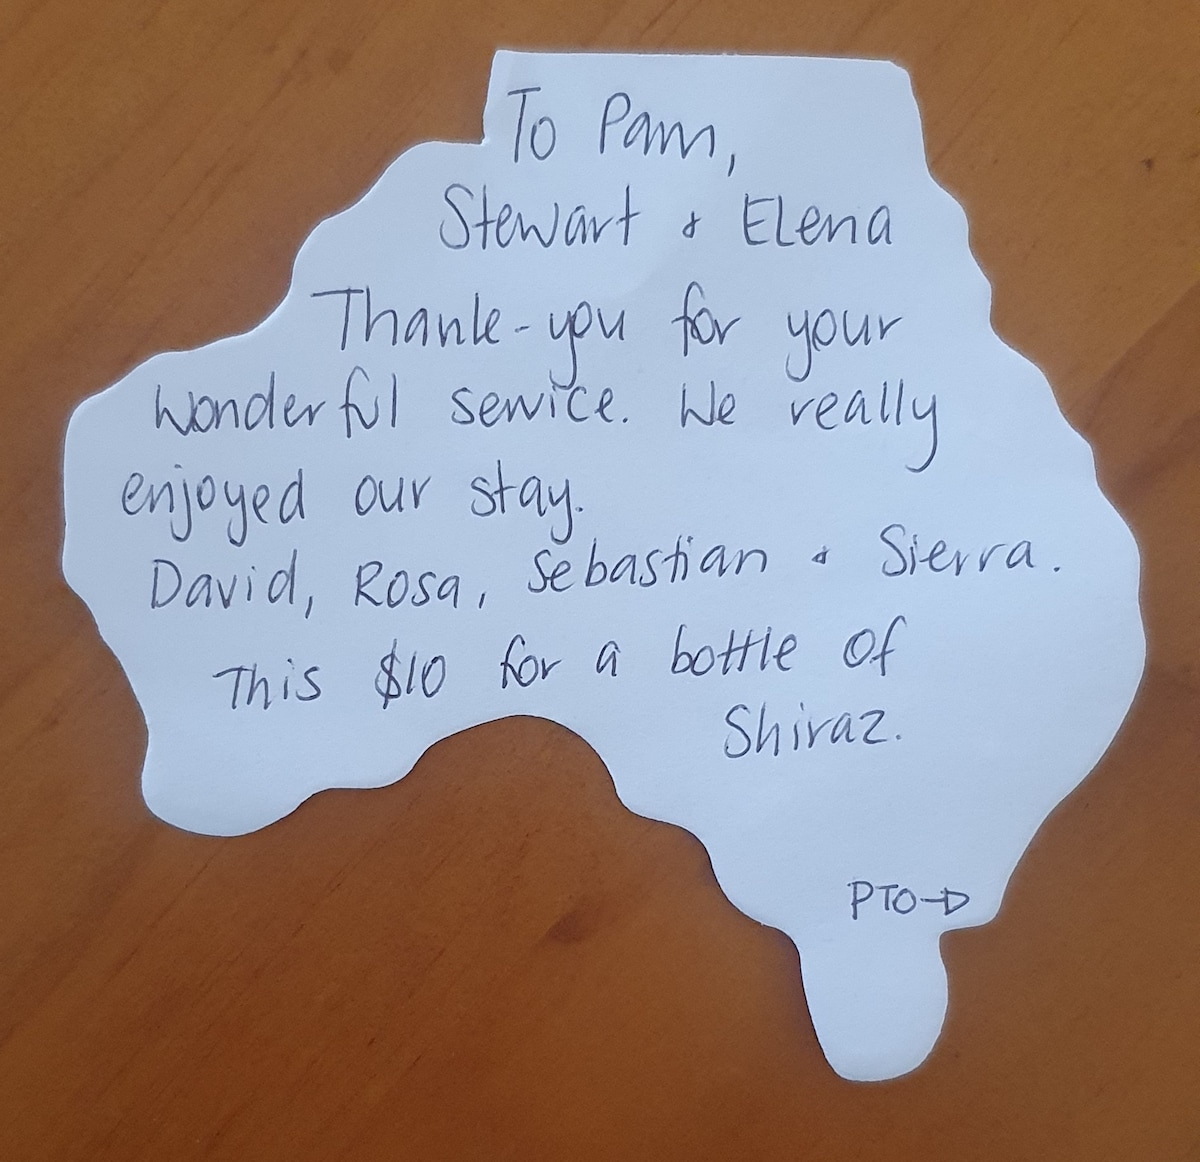 To Pam,
Stewart & Elena
Thank-you for your
wonderful service. We really
enjoyed our stay.
David, Rosa, Sebastian & Sierra.
This $10 for a bottle of
Shiraz.
PTO→